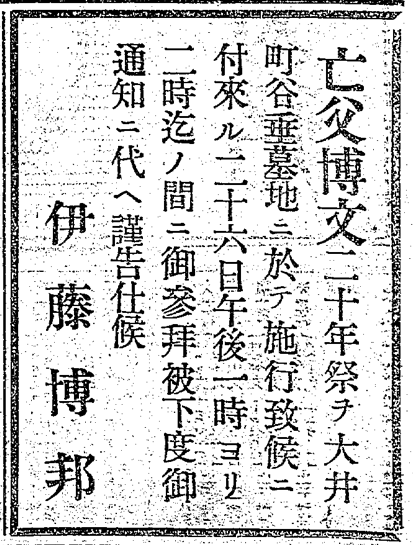 亡父博文二十年祭ヲ大井
町谷垂墓地ニ於テ施行致候ニ
付來ル二十六日午後一時ヨリ
二時迄ノ間ニ御參拜被下度御
通知ニ代ヘ謹告仕候
伊藤博邦